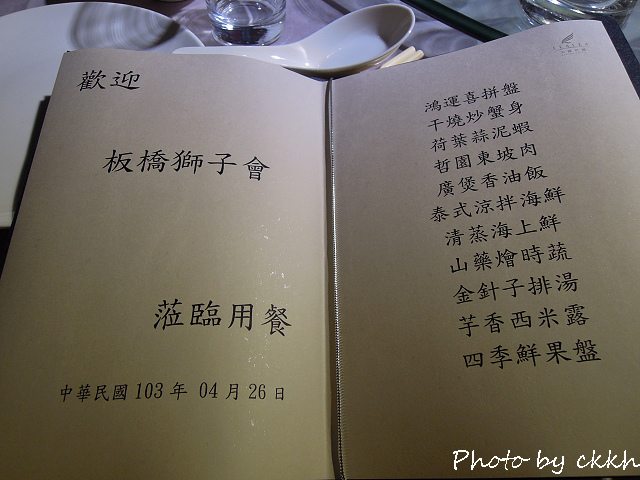 歡迎
板橋獅子會
蒞臨用餐
中華民國 103 年 04 月 26 日
鴻運喜拼盤
干燒炒蟹身
荷葉蒜泥蝦
哲園東坡肉
廣煲香油飯
泰式涼拌海鮮
清蒸海上鮮
山藥燴時蔬
金針子排湯
芋香西米露
四季鮮果盤
Photo by ckkh